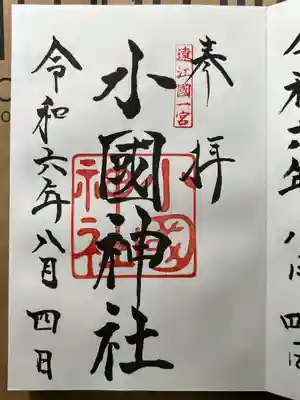 奉拝
遠江國一宮
小國神社
小國神社
令和六年八月四日